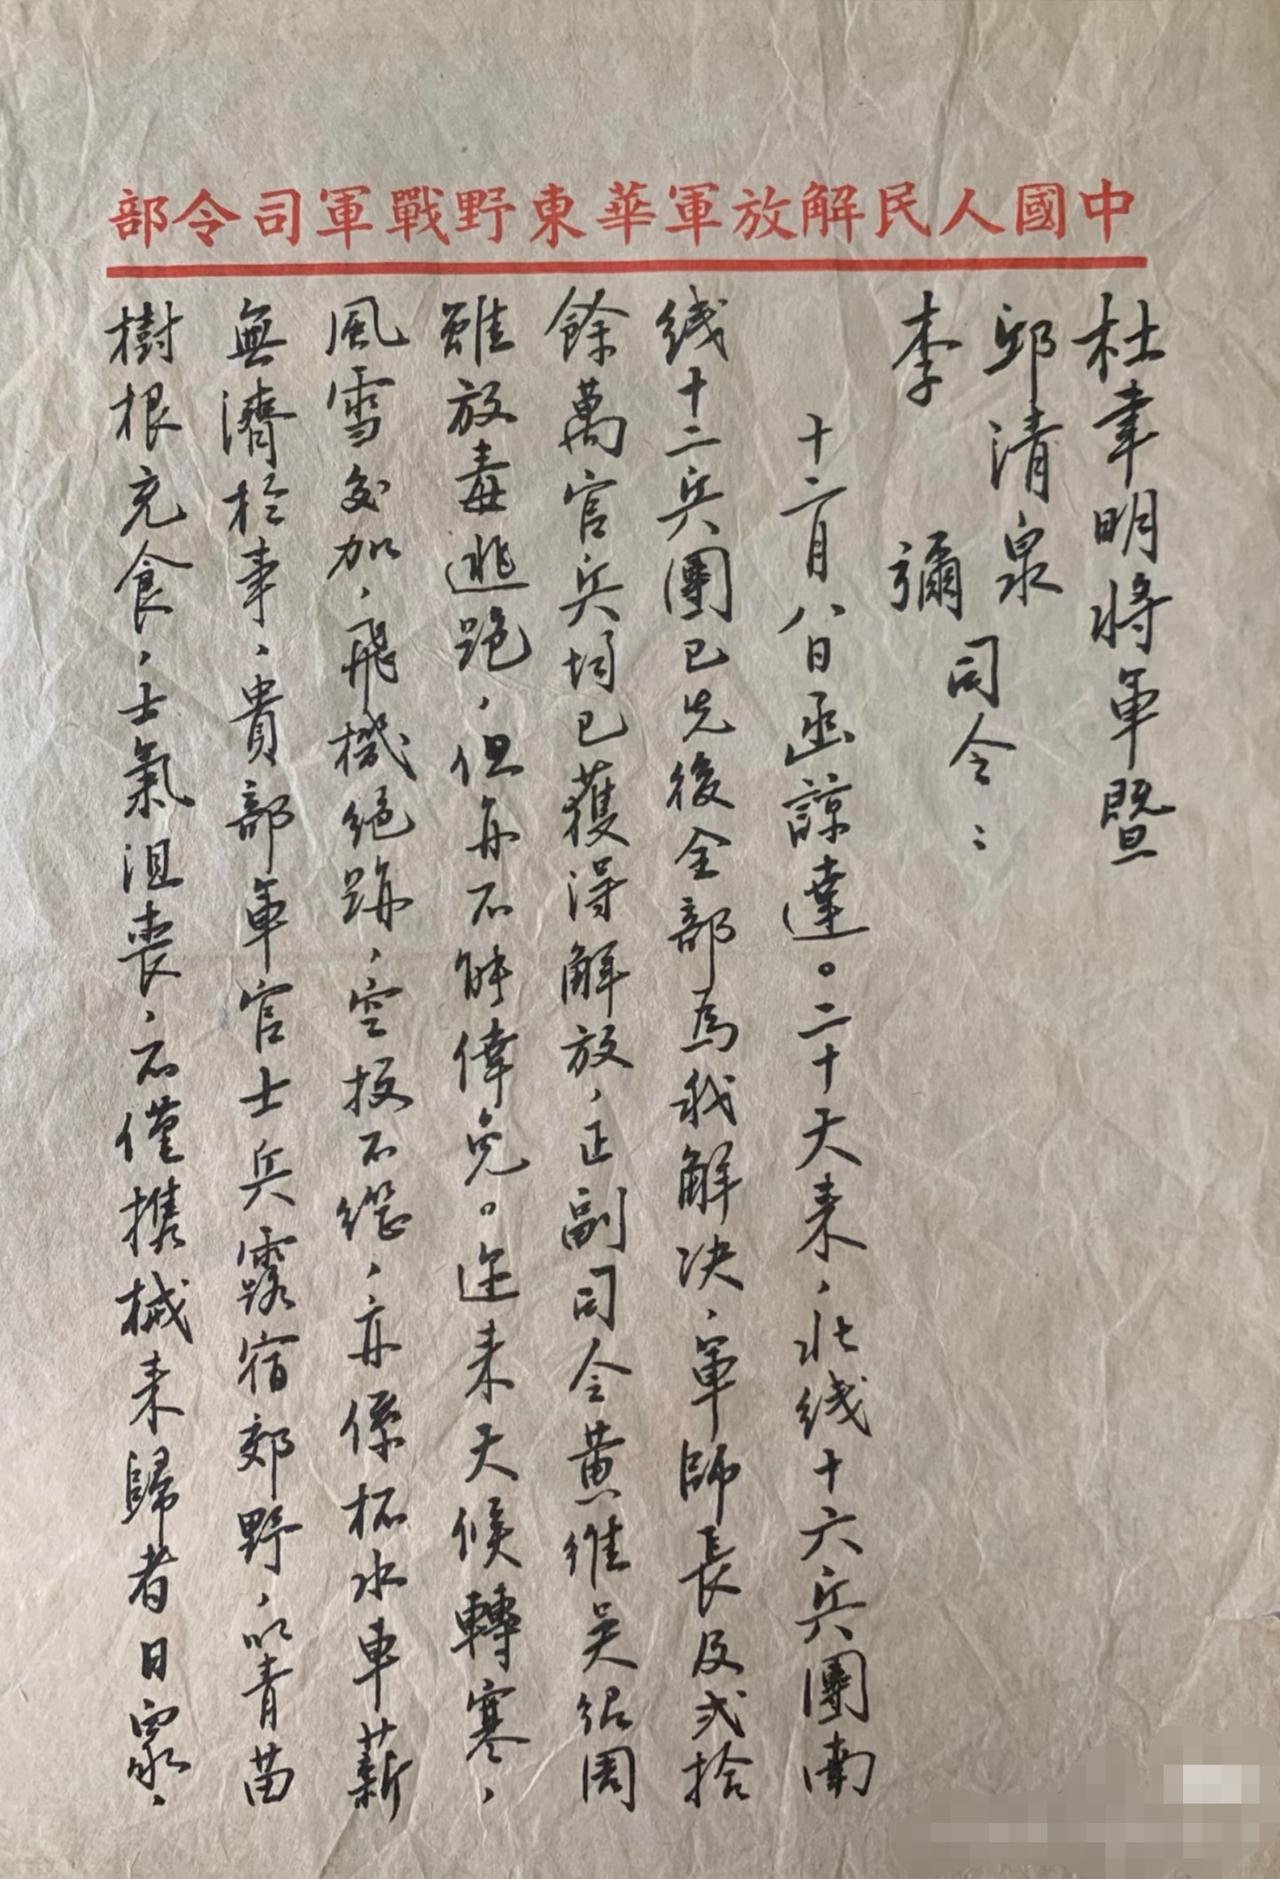 中國人民解放軍華東野戰軍司令部
杜聿明将軍暨
邱清泉
李彌
司令：
十二月八日函諒達。二十天来，北线十六兵團南
线十二兵團已先後全部為我解决，軍師長及弍拾
餘萬官兵均已獲得解放，正副司令黄维吴绍周
雖放毒逃跑，但亦不能倖免。近来天候轉寒，
風雪交加，飛機絕跡，空投不繼，亦係杯水車薪
無濟於事，貴部軍官士兵露宿郊野，以青苗
樹根充食，士氣沮喪，不僅携械来歸者日衆，